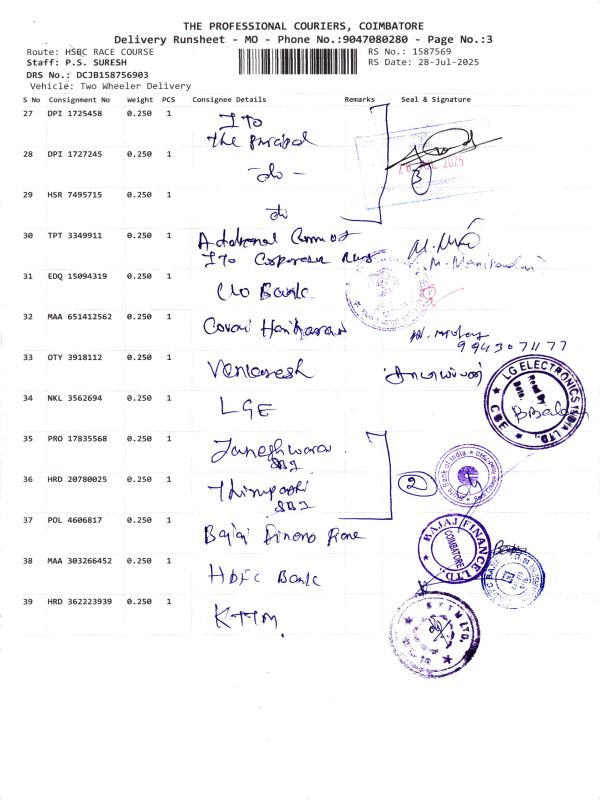 THE PROFESSIONAL COURIERS, COIMBATORE
Delivery Runsheet - MO - Phone No.:9047080280 - Page No.:3
Route: HSBC RACE COURSE RS No.: 1587569
Staff: P.S. SURESH RS Date: 28-Jul-2025
DRS No.: DCJB158756903
Vehicle: Two Wheeler Delivery
S No Consignment No Weight PCS Consignee Details Remarks Seal & Signature
27 DPI 1725458 0.250 1 ITO
The
28 DPI 1727245 0.250 1 - do -
3
29 HSR 7495715 0.250 1 do
30 TPT 3349911 0.250 1
ITO
31 EDQ 15094319 0.250 1 Bank
32 MAA 651412562 0.250 1 Covai Hariharan
9943071177
33 OTY 3918112 0.250 1 Venkatesh
34 NKL 3562694 0.250 1 LGE
LG ELECTRONICS INDIA LTD.
CBE
35 PRO 17835568 0.250 1
SBI
State Bank of India
36 HRD 20780025 0.250 1 2
SBI
37 POL 4606817 0.250 1 Bajaj
BAJAJ FINANCE LTD.
COIMBATORE
38 MAA 303266452 0.250 1 Hdfc Bank
39 HRD 362223939 0.250 1 KTTM
KTTM LTD.